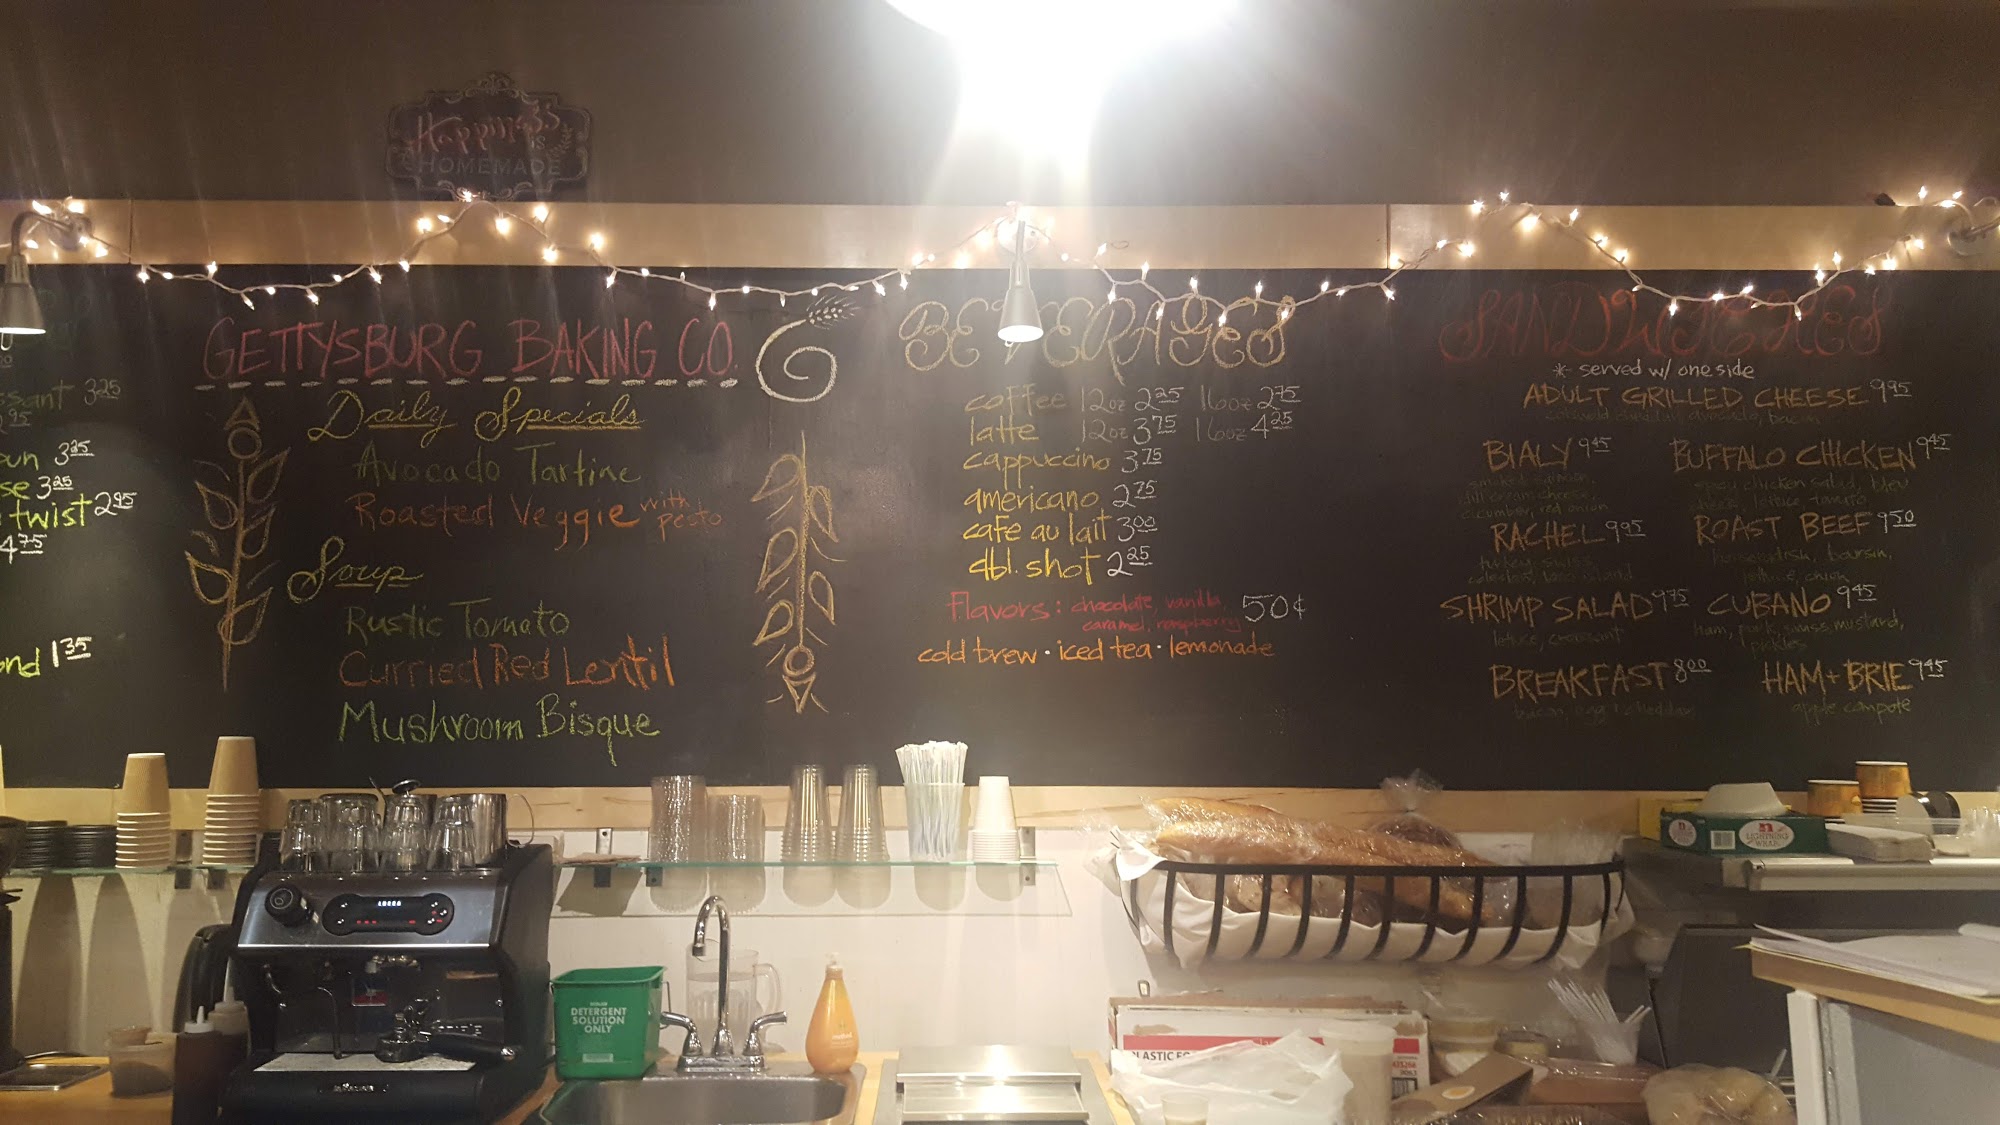 Happiness
is
HOMEMADE
ssant 3.25
2.95
un 3.25
se 3.25
twist 2.95
4.75
ond 1.35
GETTYSBURG BAKING CO.
Daily Specials
Avocado Tartine
Roasted Veggie with pesto
Soup
Rustic Tomato
Curried Red Lentil
Mushroom Bisque
BEVERAGES
coffee 12oz 2.25 16oz 2.75
latte 12oz 3.75 16oz 4.25
cappuccino 3.75
americano 2.75
cafe au lait 3.00
dbl. shot 2.25
Flavors: chocolate, vanilla, 50¢
caramel, raspberry
cold brew · iced tea · lemonade
SANDWICHES
* served w/ one side
ADULT GRILLED CHEESE 9.95
avocado, bacon
BIALY 9.45
smoked salmon,
dill cream cheese,
cucumber, red onion
BUFFALO CHICKEN 9.45
chicken salad, bleu
cheese, lettuce, tomato
RACHEL 9.95
turkey, swiss,
coleslaw, 1000 island
ROAST BEEF 9.50
horseradish, boursin,
lettuce, onion
SHRIMP SALAD 9.75
lettuce, croissant
CUBANO 9.45
ham, pork, swiss, mustard,
pickles
BREAKFAST 8.00
bacon, egg + cheddar
HAM + BRIE 9.45
apple compote
DETERGENT
SOLUTION
ONLY
method
PLASTIC